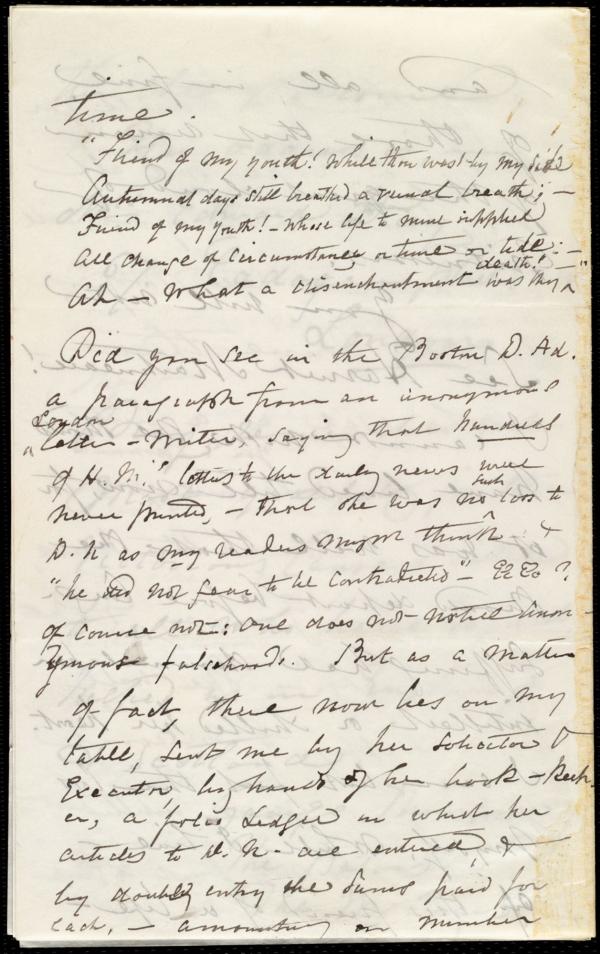 time.
"Friend of my youth! while thou wast by my side
Autumnal days still breathed a vernal breath; —
Friend of my youth! — whose life to mine supplied
All change of circumstance, or time or tide: —
Ah — What a disenchantment was thy death!"
Did you see in the Boston D. Ad.
a paragraph from an anonymous
London
letter-writer, saying that hundreds
of H. M.'s letters to the daily news were
never printed, — that she was no such loss to
D. N as my readers might think &
"he did not fear to be contradicted" — &c &c?
of course not: one does not notice anon-
ymous falsehoods. But as a matter
of fact, there now lies on my
table, sent me by her solicitor &
Executor, by hands of her book-keep-
er, a folio Ledger in which her
articles to D. N. are entered, &
by double entry the sums paid for
each, — amounting in number